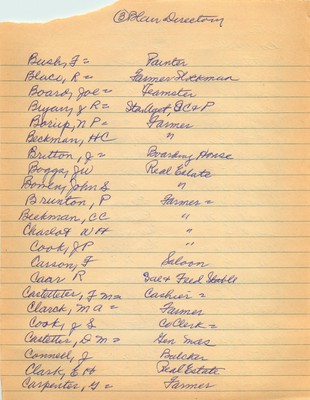 ② Blair Directory
Bush, F = Painter
Black, R = Farmer Stockman
Board, Joe = Teamster
Bryan, J R = Sta Agt, QC & P
Borup, N P = Farmer
Beckman, HC "
Britton, J = Boarding House
Boggs, JW Real Estate
Bowen, John S "
Brunton, P Farmer =
Beekman, CC "
Charlot W H "
Cook, J P "
Curson, F Saloon
Caar R Sale & Feed Stable
Castetter, F M = Cashier =
Clarck, M A = Farmer
Cook, J S Co Clerk =
Castetter, D M = Gen Mas
Connell, J Butcher
Clark, E H Real Estate
Carpenter, G = Farmer